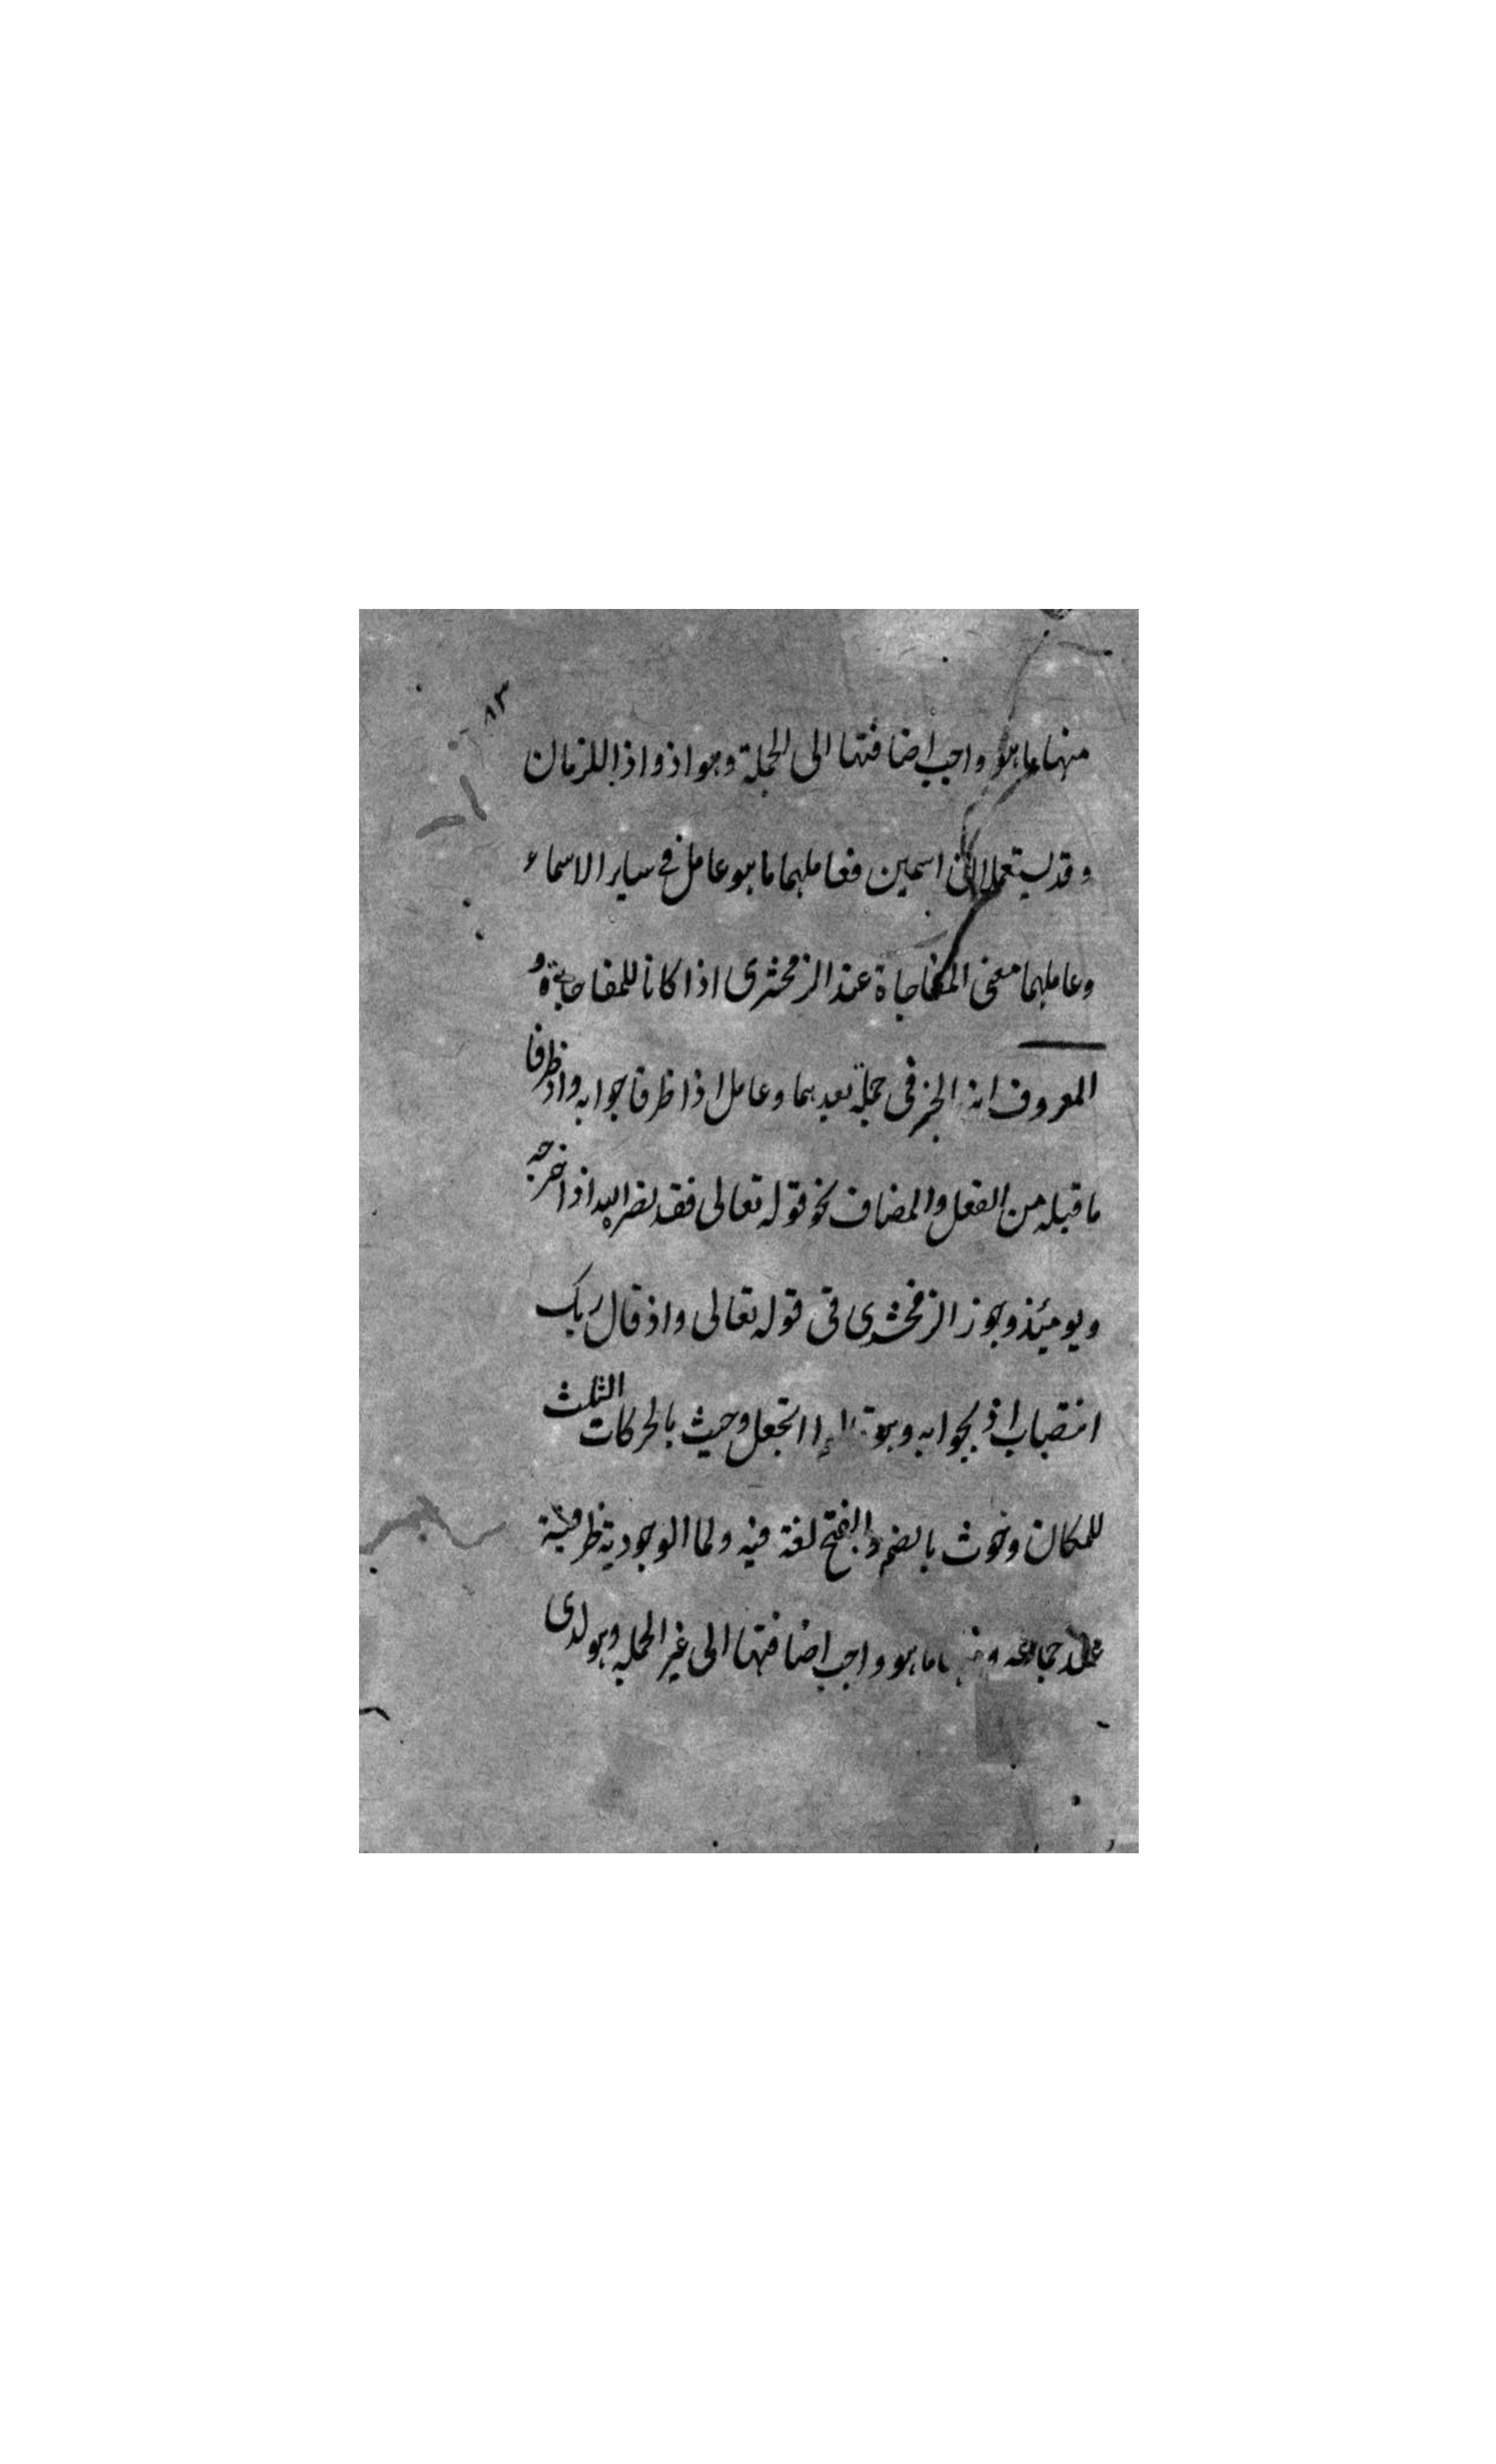 ٨٣
منها ما هو واجب اضافتها الى الجملة وهو اذ واذا للزمان
وقد يستعملان اسمين فعاملهما ما هو عامل في ساير الاسماء
وعاملهما معنى المفاجاة عند الزمخشرى اذا كانا للمفاجاة و
المعروف انه الخبر فى جملة بعدهما وعامل اذا ظرفا جوابه واذ ظرفا
ما قبله من الفعل والمضاف نحو قوله تعالى فقد نصره الله اذ اخرجه
ويومئذ وجوز الزمخشرى فى قوله تعالى واذ قال ربك
انتصاب اذ بجوابه وهو اتجعل وحيث بالحركات الثلث
للمكان وحوث بالضم والفتح لغة فيه ولما الوجودية ظرفية
عند جماعه ما هو واجب اضافتها الى غير الجمله وهو لدى